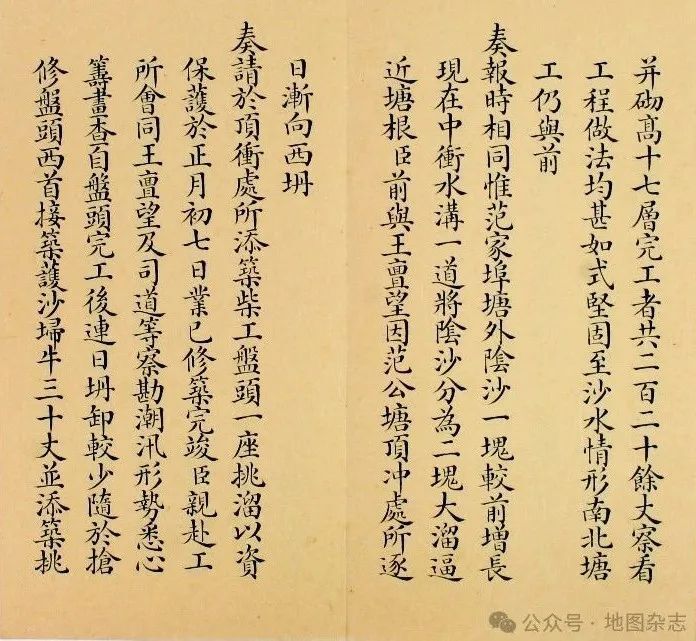 并砌髙十七層完工者共二百二十餘丈察看
工程做法均甚如式堅固至沙水情形南北塘
工仍與前
奏報時相同惟范家埠塘外陰沙一塊較前增長
現在中衝水溝一道將陰沙分為二塊大溜逼
近塘根臣前與王亶望因范公塘頂冲處所逐
日漸向西坍
奏請於頂衝處所添築柴工盤頭一座挑溜以資
保護於正月初七日業已修築完竣臣親赴工
所會同王亶望及司道等察勘潮汛形勢悉心
籌畫查自盤頭完工後連日坍卸較少隨於搶
修盤頭西首接築護沙埽牛三十丈並添築挑
公众号·地图杂志